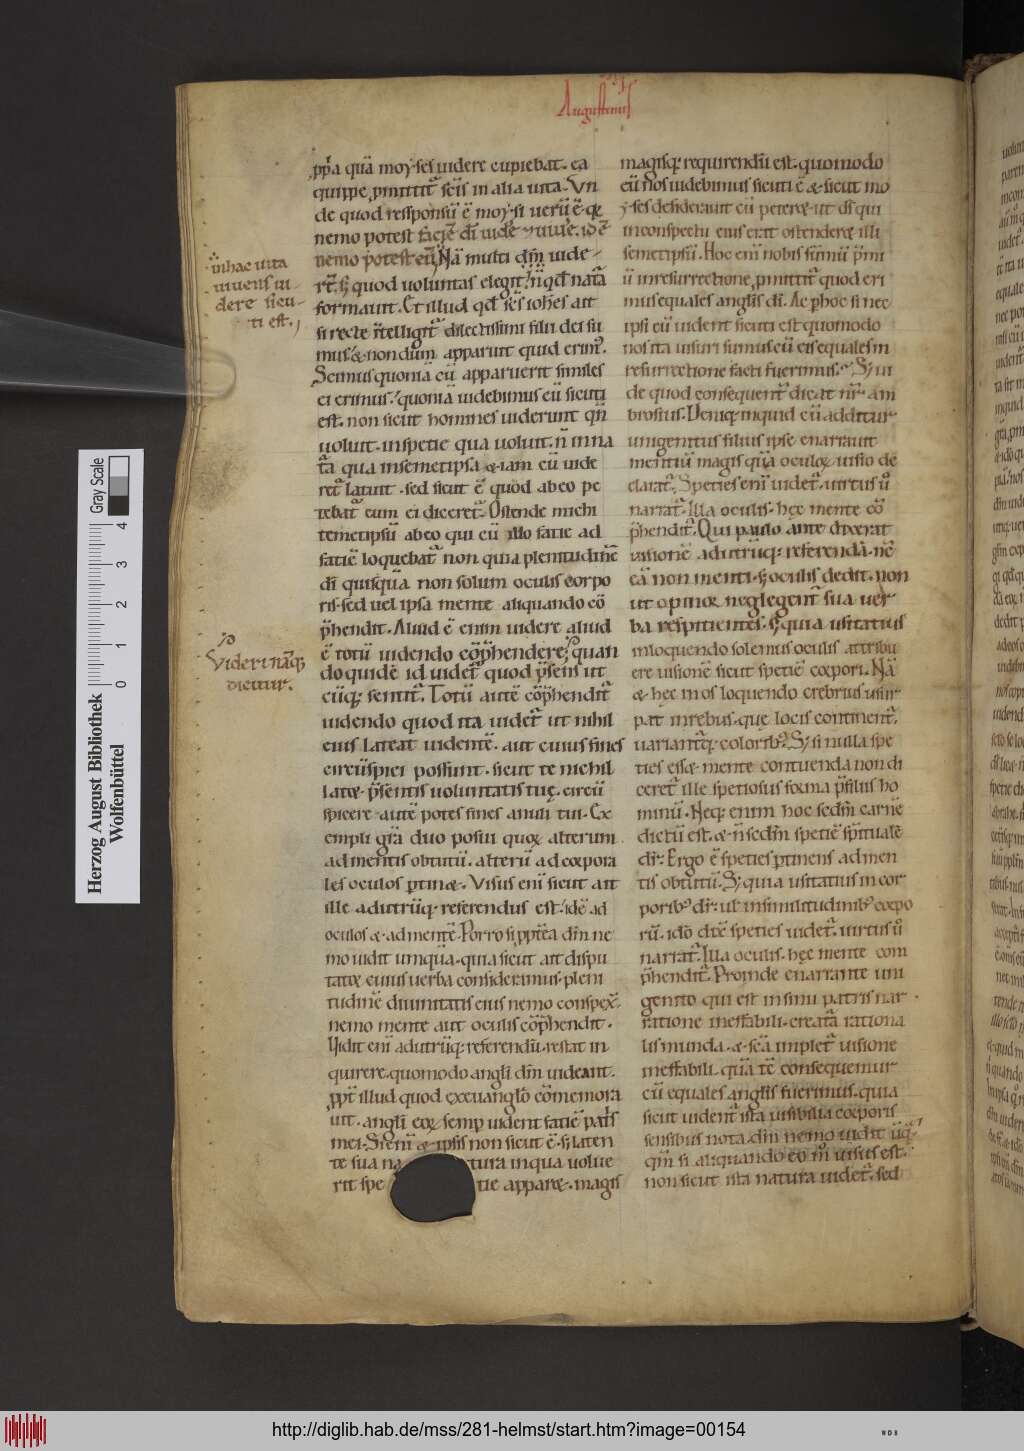 Augustinus
ppͥa quā moy·ses uidere cupiebat. ea
quippe ꝓmittit᷑ sc̄is in alia uita. Vn
de quod responsū ē moy·si uerū ē. qꝛ
nemo potest faciē dī uidē & uiuē. id ē
nemo potest eū Nā multi dm̄ uide
rt᷑. sꝫ quod uoluntas elegit. n̄ qd̄ natā
formauit. Et illud qd̄ sc̄s ioh̄es ait
si recte intelligit᷑ dilectissimi filii dei su
mus. & nondum apparuit quid erim᷒.
Scimus quoniā cū apparuerit similes
ei erimus. quoniā uidebimus eū sicuti
est. non sicut homines uiderunt qn̄
uoluit. in spetie qua uoluit. n̄ in na
t᷑a qua in semetipsa & iam cū uide
ret᷑ latuit. sed sicut ē quod ab eo pe
tebat᷑ cum ei diceret᷑. Ostende michi
temetipsū ab eo qui cū illo fatie ad
fatiē loquebat᷑ non quia plenitudinē
dī quisquā non solum oculis corpo
ris. sed uel ipsa mente aliquando cō
p̄hendit. Aliud ē enim uidere aliud
ē totū uidendo cōp̄hendere. quan
do quidē id uidet᷑ quod p̄sens ut
cūqꝫ sentit᷑. Totū autē cōp̄hendit᷑
uidendo quod ita uidet᷑ ut nihil
eius lateat uidentē. aut cuius fines
circūspici possunt. sicut te nichil
latet p̄sentis uoluntatis tuę. circū
spicere autē potes fines anuli tui. Ex
empli grā duo posui quoꝝ alterum
ad mentis obtutū. alterū ad corpora
les oculos ꝑtinet. Visus eni sicut ait
ille ad utrūqꝫ referendus est. idē ad
oculos & ad mentē. Porro si ppt̄ea dm̄ ne
mo uidit umquā. quia sicut ait dispu
tator cuius uerba consideramus. pleni
tudinē diuinitatis eius nemo conspex̄.
nemo mente aut oculis cōp̄hendit.
Vidit eni ad utrūqꝫ referendū. restat in
quirere. quomodo angli dm̄ uideant.
ꝓpt᷑ illud quod ex euanglo cōmemora
uit. angli eoꝝ semꝑ uident fatiē patris
mei. Si eni & ipsis non sicut ē. si laten
te sua na tura in qua uolue
rit spe tie apparet. magis
in hac uita
uiuens ui
dere sicu
ti est.
Videri nāqꝫ
dicitur.
magisqꝫ requirendū est. quomodo
eū nos uidebimus sicuti ē & sicut mo
y·ses desiderauit cū peteret ut ds̄ qui
in conspectu eius erat ostenderet illi
semetipsū. Hoc eni nobis sūmū p̄mi
ū in resurrectione ꝓmittit᷑ quod eri
mus equales anglis dī. Ac ꝑ hoc si nec
ipsi eū uident sicuti est quomodo
nos ita uisuri sumus cū eis equales in
resurrectione facti fuerimus. Sꝫ ui
de quod consequent᷑ dicat nr̄ am
brosius. Deniqꝫ inquid cū additur
unigenitus filius ipse enarrauit
mentiū magis quā oculoꝝ uisio de
clarat᷑. Speties eni uidet᷑. uirtus u̅
narrat᷑. Illa oculis. hęc mente cō
p̄hendit᷑. Qui paulo ante dixerat
uisionē ad utrūqꝫ referendā. n̄c
eā non menti. sꝫ oculis dedit. non
ut opinor neglegent᷑ sua uer
ba respitientes. sꝫ quia usitatius
in loquendo solemus oculis attribu
ere uisionē sicut spetiē corpori. Nā
& hęc mos loquendo crebrius usur
pat in rebus. quę locis continent᷑.
uariant᷑qꝫ coloribꝰ. Sꝫ si nulla spe
ties esset mente contuenda non di
ceret᷑ ille spetiosus forma p̄ filiis ho
minū. Neqꝫ enim hoc sedm̄ carnē
dictū est. & n̄ sedm̄ spetiē spiritualē
dr̄. Ergo ē speties ꝑtinens ad men
tis obtutū. Sꝫ quia usitatius in cor
poribꝰ dr̄. ut in similitudinibꝰ corpo
rū. ido dixit speties uidet᷑. uirtus u̅
narrat᷑. Illa oculis. hęc mente com
p̄hendit᷑. Proinde enarrante uni
genito qui est in sinu patris nar
ratione ineffabili. creatā rationa
lis munda. & scā implet᷑ uisione
ineffabili. quā tē consequemur
cū equales anglis fuerimus. quia
sicut uident᷑ ista uisibilia corporis
sensibus nota. dm̄ nemo uidit ūqꝫ.
qm̄ si aliquando eo modo uisus est.
non sicut ista natura uidet᷑. sed
Herzog August Bibliothek
Wolfenbüttel
0 1 2 3 4
Gray Scale
http://diglib.hab.de/mss/281-helmst/start.htm?image=00154
WDB